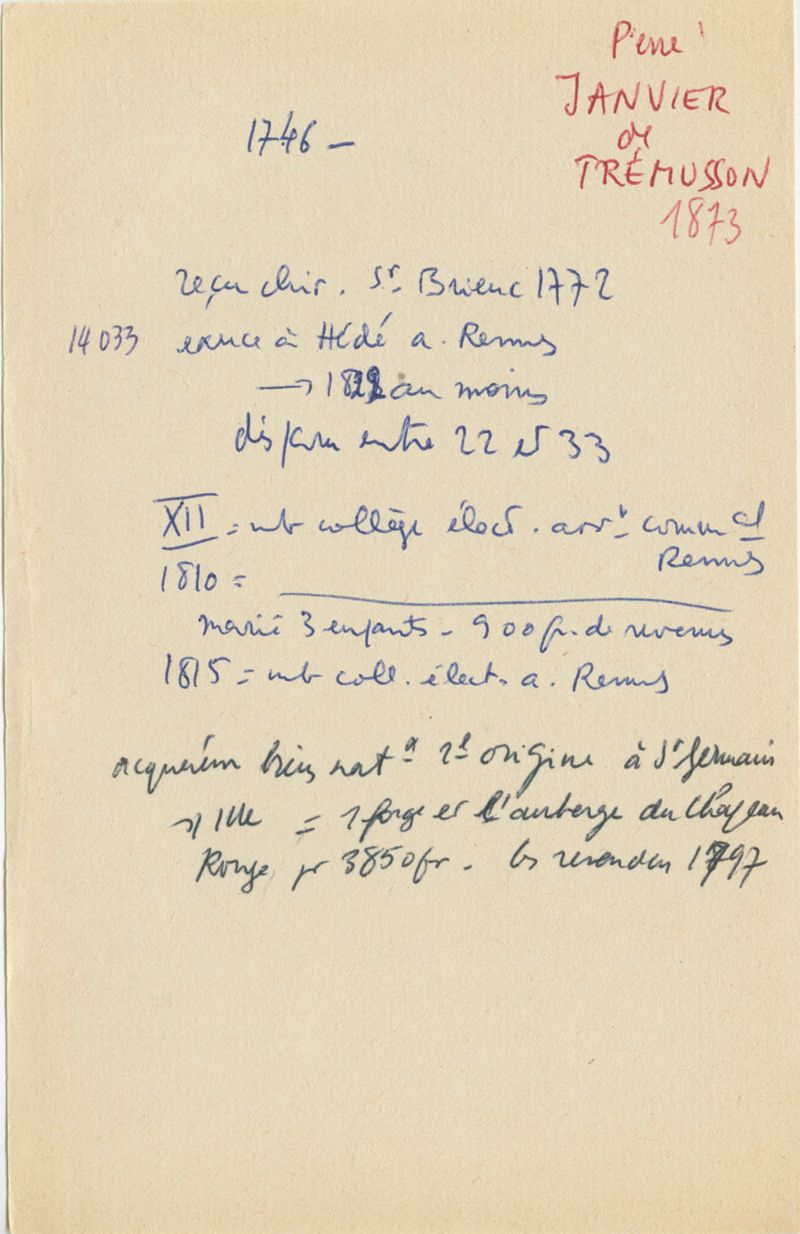 Pierre
JANVIER
de
TRÉMUSSON
1873
1746 –
reçu chir. St Brieuc 1772
14033 exerce à Hédé a. Rennes
→ 1822 au moins
disparu entre 22 et 33
XII = mb collège élect. arrt commal
Rennes
1810 =
marié 3 enfants – 900 fr. de revenus
1815 = mb coll. élect. a. Rennes
acquéreur biens nat x 2d origine à St Germain
s/ Ille = 1 forge et l'auberge du Chapeau
Rouge pr 3850 fr. les revendu 1797